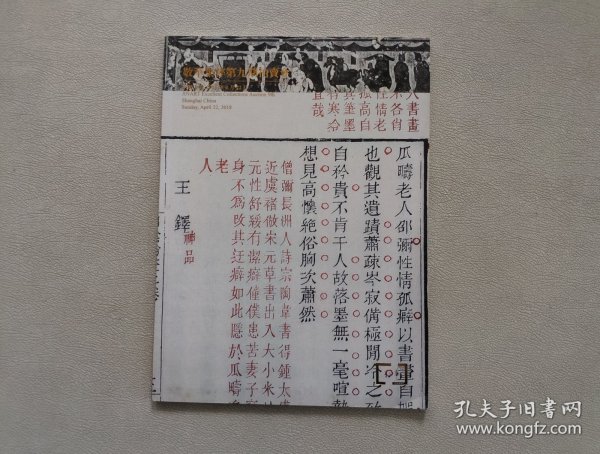 第九
Shanghai China
Sunday, April 22, 2012
人書畫
不各肖
性情老
孤高自
真筆墨
有寒谷
宜哉
瓜疇老人邵彌性情孤癖以書畫自
也觀其遺蹟蕭疎岑寂備極閒冷之致
自矜貴不肯干人故落墨無一毫喧熱
想見高懷絶俗胸次蕭然
僧彌長洲人詩宗陶韋書得鍾太虞
近虞褚倣宋元草書出入大小米
元性舒緩有潔癖僮僕患苦妻子
身不爲改其迂癖如此隱於瓜疇
老
人
王鐸
神品
孔夫子旧书网
www.kongfz.com